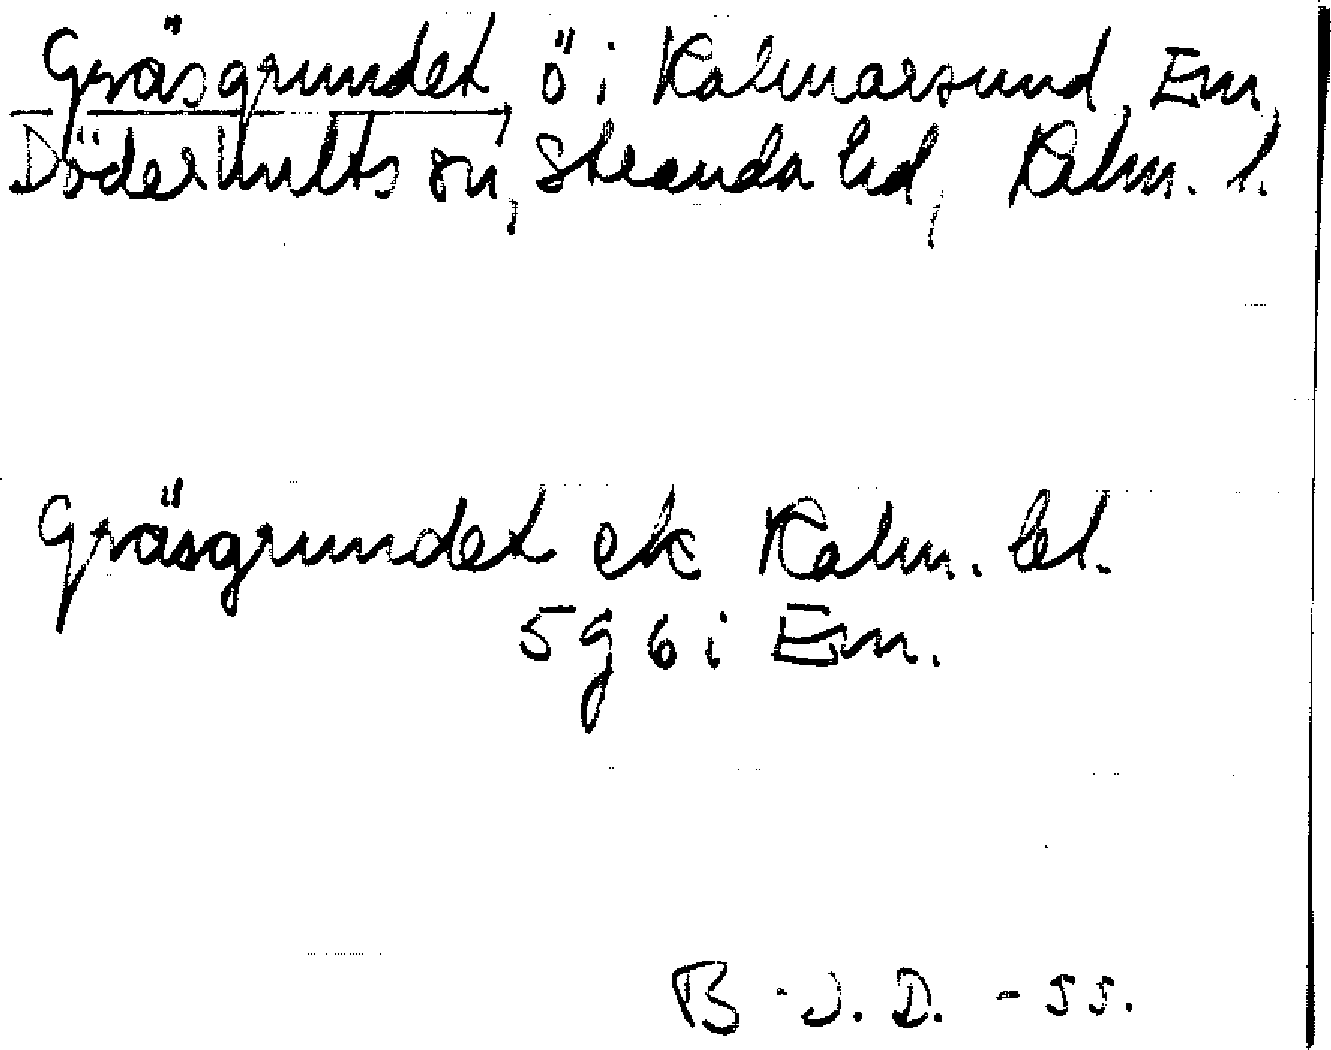 Gräsgrundet, ö i Kalmarsund, Em,
Döderhults sn, Stranda hd, Kalm. l.
Gräsgrundet ek Kalm. lel.
5 g 6 i Em.
B-J.D. -55.